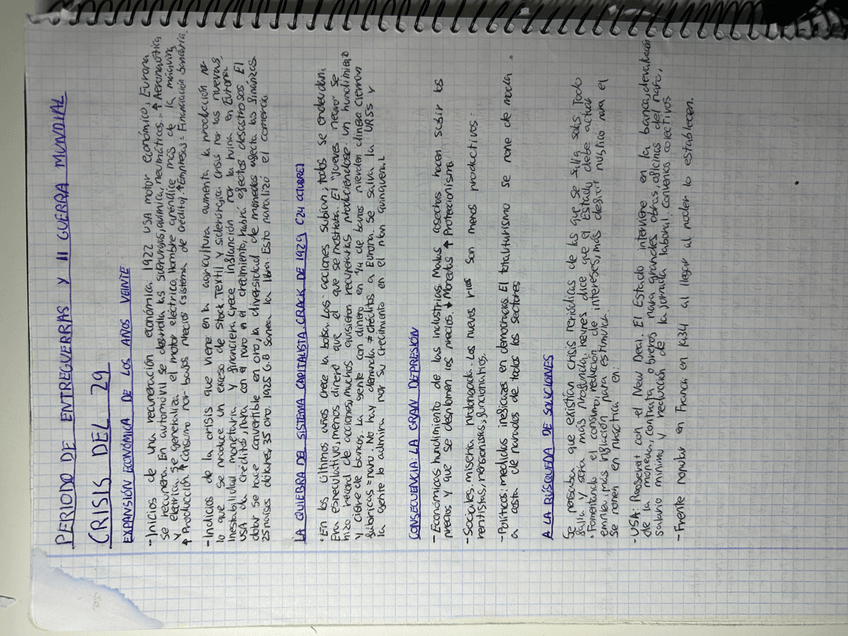 PERIODO DE ENTREGUERRAS Y II GUERRA MUNDIAL
CRISIS DEL 29
EXPANSIÓN ECONÓMICA DE LOS AÑOS VEINTE
- Inicios de una recuperación económica. 1922 USA motor económico, Europa
se recupera. En automóvil se desarrolla las siderurgias, química, neumáticos. ↑ Aeronáutica
y eléctrica. Se generaliza el motor eléctrico. Hombre apéndice más de la máquina.
↑ Producción ↑ Consumo por bajos precios (sistema de crédito). ↑ Empresas = Financiación bancaria.
- Indicios de la crisis que viene en la agricultura aumenta la producción
lo que se produce un exceso de stock. Textil y siderurgia crisis por las nuevas
Inestabilidad monetaria y financiera. Crece inflación por la ruina en Europa
USA da créditos, para con el paro o el crecimiento, habrá efectos desastrosos. El
dólar se hace convertible en oro, la diversidad de monedas afecta las finanzas.
25 países dólares, 35 oro. 1925 G.B la libra. Esto paralizó el comercio.
LA QUIEBRA DEL SISTEMA CAPITALISTA CRACK DE 1929 (24 OCTUBRE)
· En los últimos años crece la bolsa. Las acciones subían, todos se endeudan.
Era especulativo, menos dinero que el que se mostraba. El jueves negro se
hizo récord de acciones, muchos quisieron recuperarlas produciéndose un hundimiento
y cierre de bancos, la gente con dinero en 14 de bancos pierden dinero. Cierran
fábricas = paro. No hay demanda ≠ créditos a Europa. Se salva la URSS y
la gente lo admira por su crecimiento en el plan quinquenal
CONSECUENCIA: LA GRAN DEPRESIÓN
- Económicas: hundimiento de las industrias. Malas cosechas hacen subir los
precios y que se desplomen los precios. ↓ Monedas ↑ Proteccionismo
- Sociales: miseria prolongada. Los nuevos ricos son menos productivos:
rentistas, pensionistas, funcionarios.
- Políticos: medidas ineficaces en democracias. El totalitarismo se pone de moda.
a costa de parados de todos los sectores
A LA BÚSQUEDA DE SOLUCIONES
Se pensaba que existían crisis periódicas de las que se salía solo. Todo
falla y esta más profunda, Keynes dice que el Estado debe actuar
· Fomentando el consumo, reducción de intereses, más déficit público para el
empleo, más inflación para estimular.
Se ponen en práctica en
- USA: Roosevelt con el New Deal. El Estado interviene en la banca, devaluación
de la moneda, contrata obreros para grandes obras, oficinas del paro,
salario mínimo y reducción de la jornada laboral. Convenios colectivos
- Frente popular en Francia en 1934 al llegar al poder lo establecen.